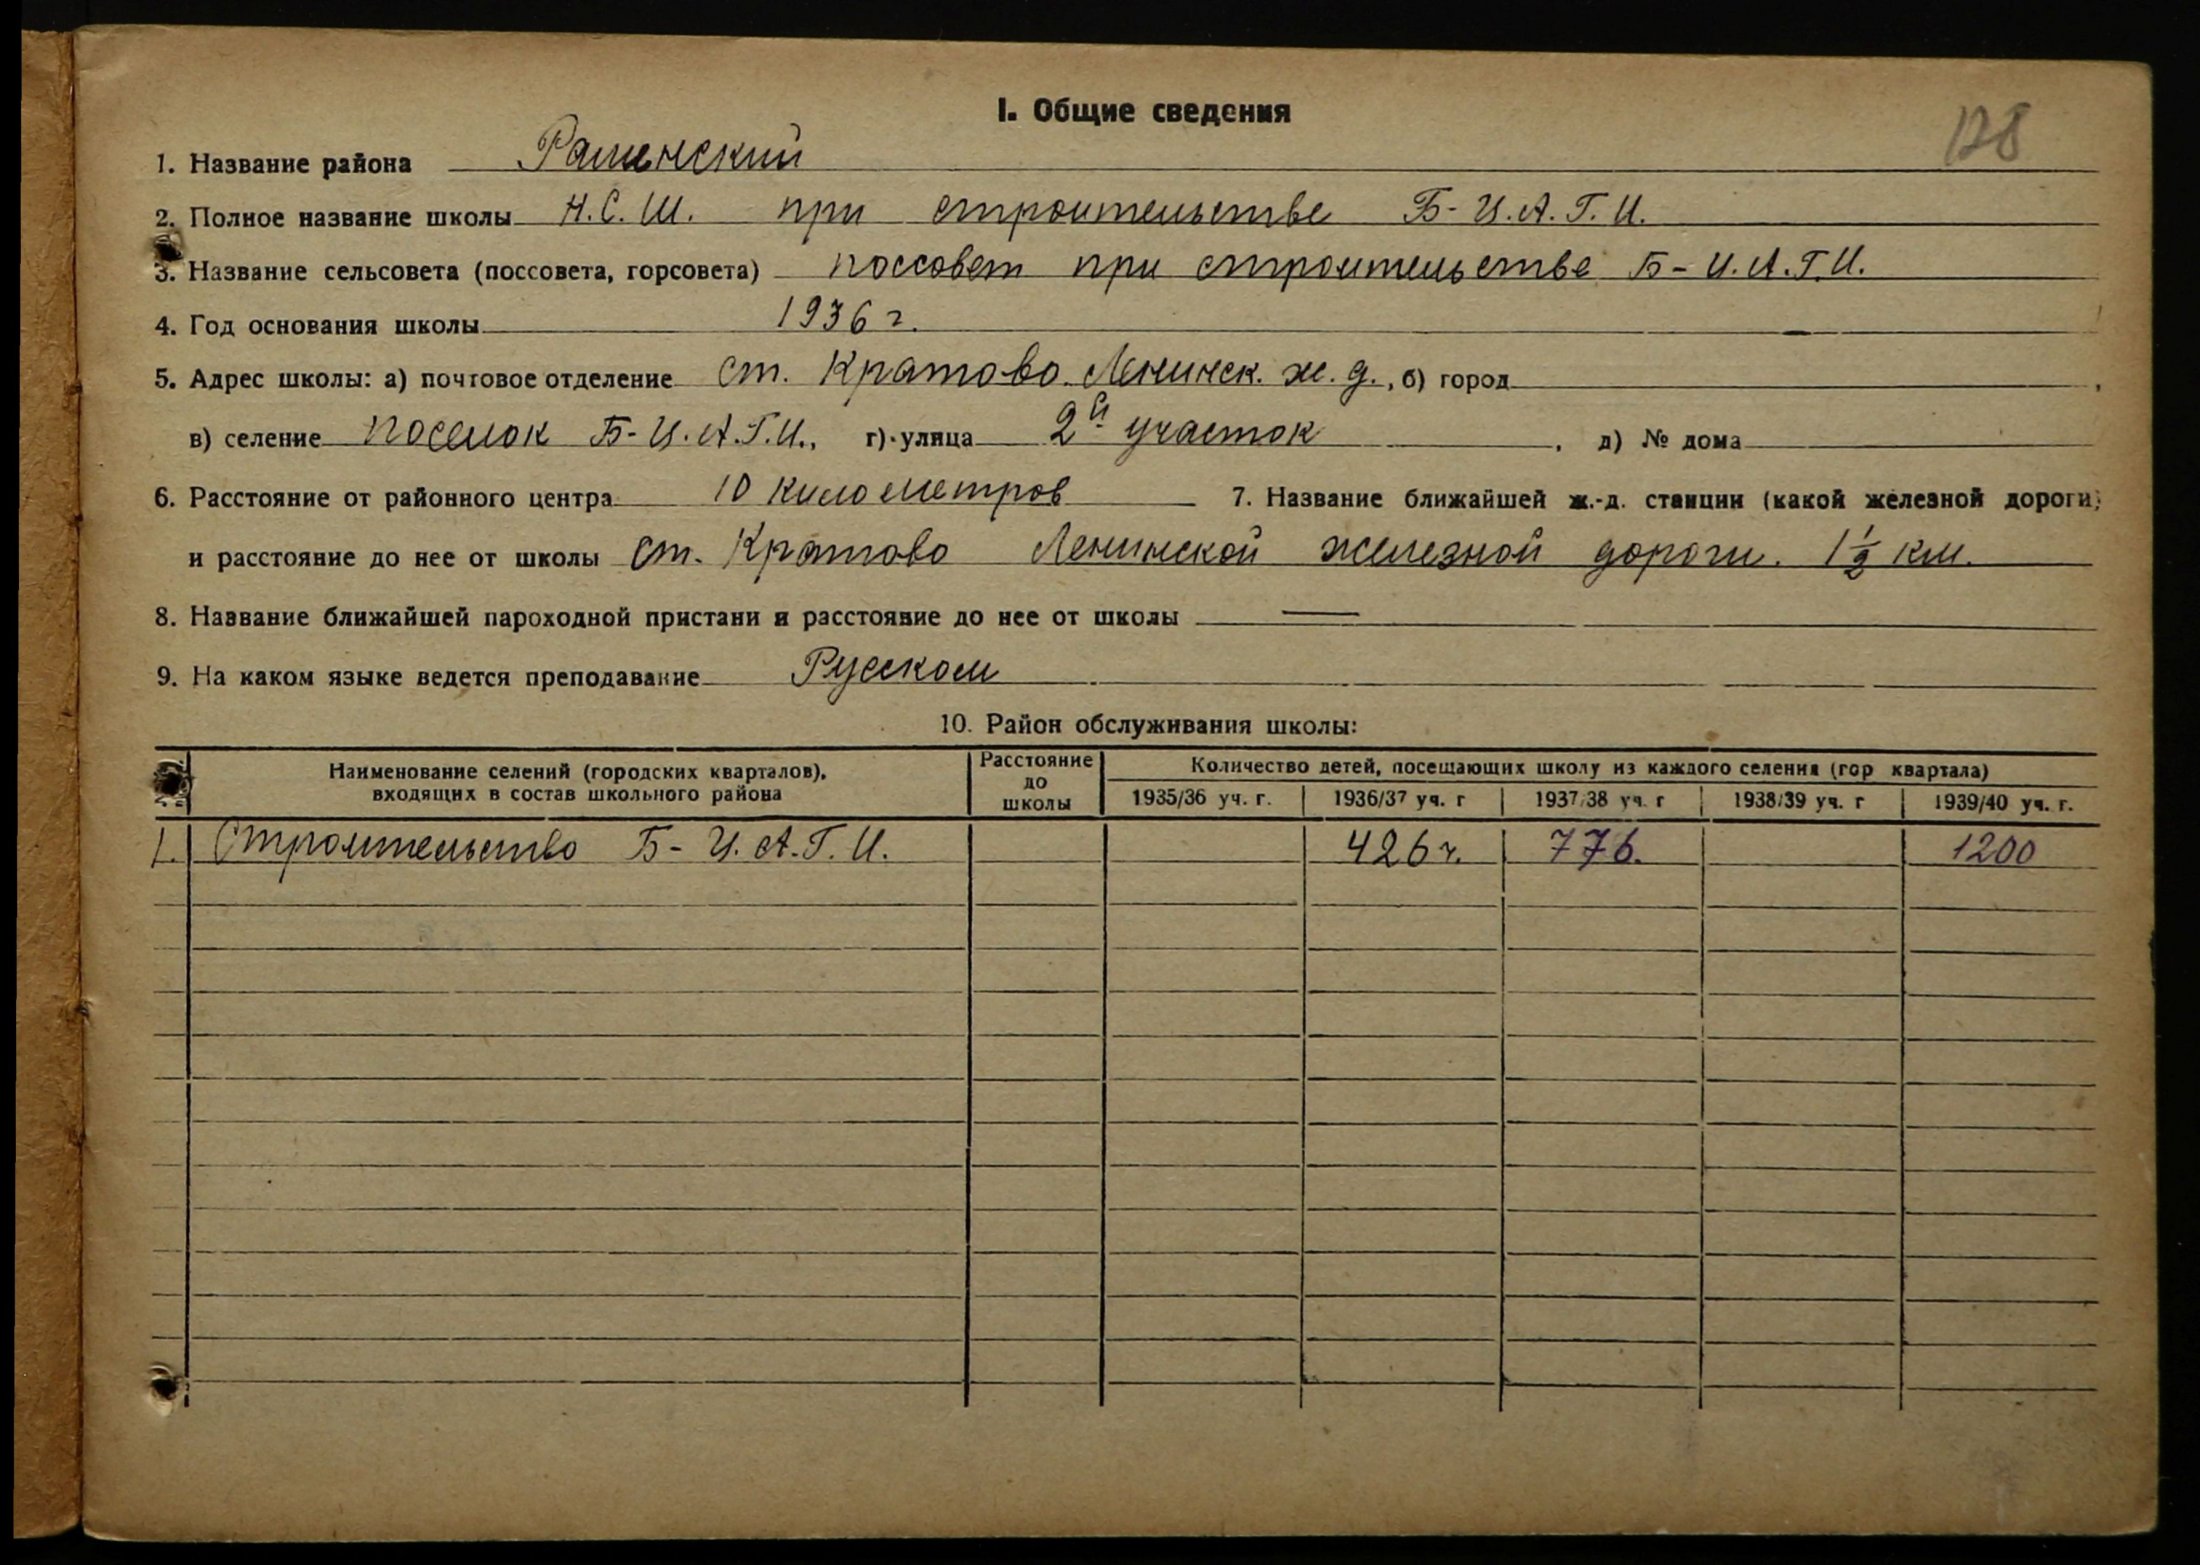 I. Общие сведения
128
1. Название района Раменский
2. Полное название школы Н.С.Ш. при строительстве Б-Ц.А.Г.И.
3. Название сельсовета (поссовета, горсовета) поссовет при строительстве Б-Ц.А.Г.И.
4. Год основания школы 1936 г.
5. Адрес школы: а) почтовое отделение ст. Кратово Ленинск. ж. д., б) город ,
в) селение поселок Б-Ц.А.Г.И., г) улица 2й участок , д) № дома
6. Расстояние от районного центра 10 километров 7. Название ближайшей ж.-д. станции (какой железной дороги)
и расстояние до нее от школы ст. Кратово Ленинской железной дороги. 1 1/2 км.
8. Название ближайшей пароходной пристани и расстояние до нее от школы —
9. На каком языке ведется преподавание Русском
10. Район обслуживания школы:
Наименование селений (городских кварталов), входящих в состав школьного района | Расстояние до школы | Количество детей, посещающих школу из каждого селения (гор квартала)
1935/36 уч. г. | 1936/37 уч. г | 1937/38 уч. г | 1938/39 уч. г | 1939/40 уч. г.
1. Строительство Б-Ц.А.Г.И. | 426 ч. | 776. | 1200